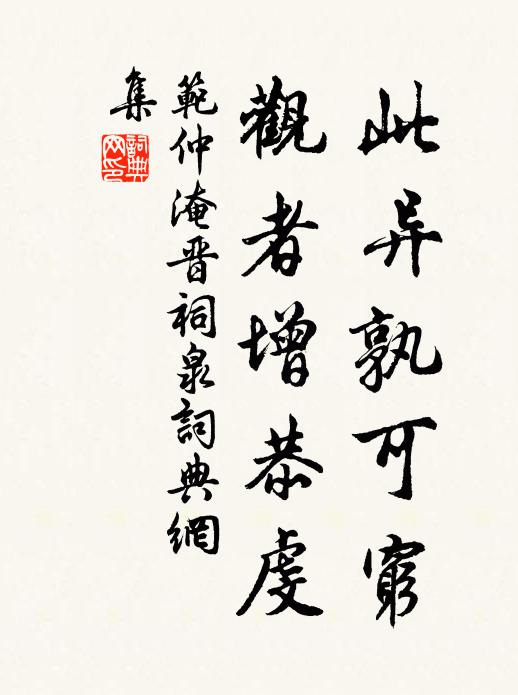 此异孰可窮
觀者增恭虔
範仲淹晋祠泉詞典網
集
詞典
网印